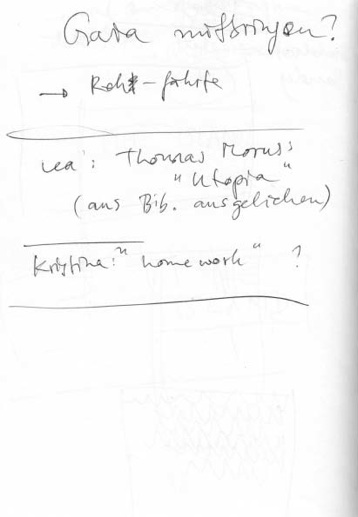 mitbringen?
→
Lea: Thomas Morus:
"Utopia"
(aus Bib. ausgeliehen)
Kristina: "homework" ?